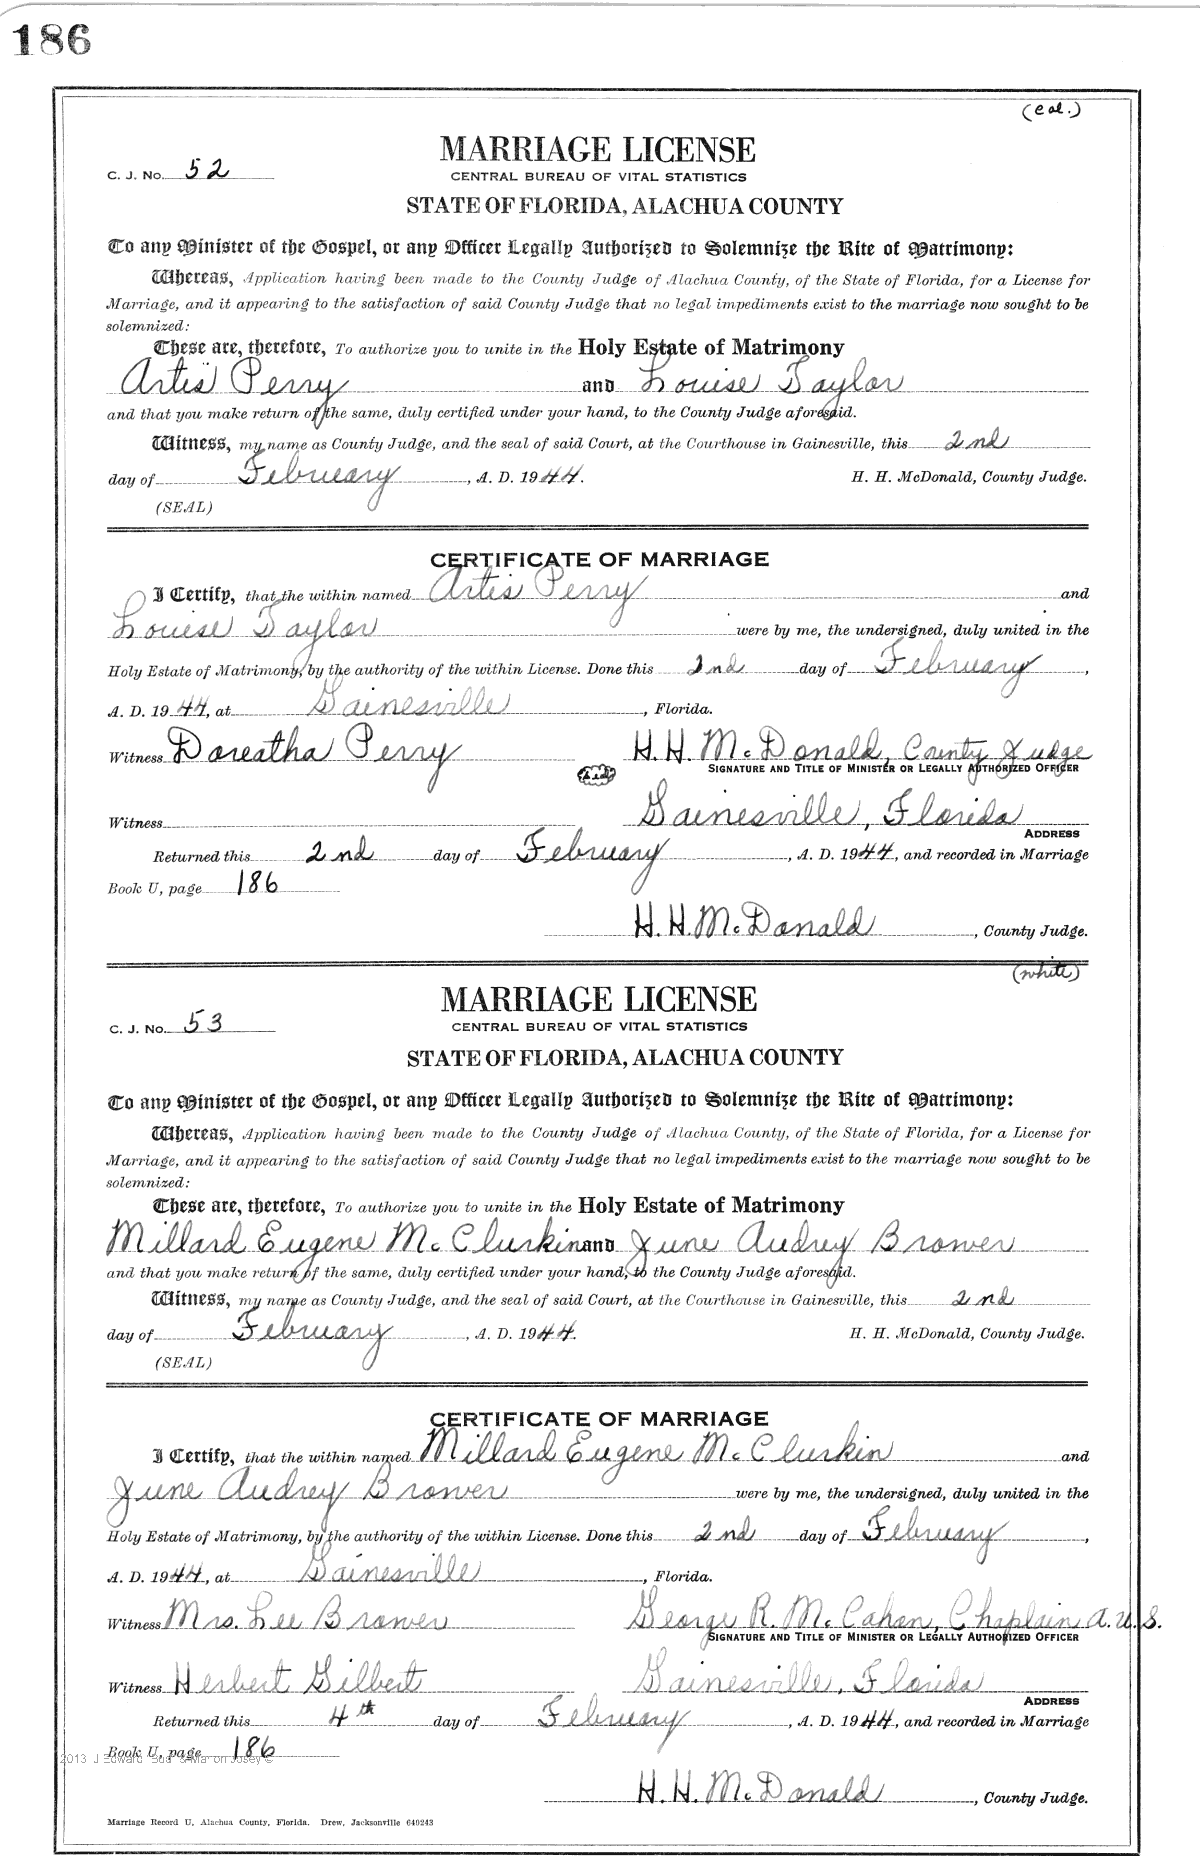 186
(Col.)
MARRIAGE LICENSE
C. J. No. 52
CENTRAL BUREAU OF VITAL STATISTICS
STATE OF FLORIDA, ALACHUA COUNTY
To any Minister of the Gospel, or any Officer Legally Authorized to Solemnize the Rite of Matrimony:
Whereas, Application having been made to the County Judge of Alachua County, of the State of Florida, for a License for
Marriage, and it appearing to the satisfaction of said County Judge that no legal impediments exist to the marriage now sought to be
solemnized:
These are, therefore, To authorize you to unite in the Holy Estate of Matrimony
Artis Perry and Louise Taylor
and that you make return of the same, duly certified under your hand, to the County Judge aforesaid.
Witness, my name as County Judge, and the seal of said Court, at the Courthouse in Gainesville, this 2nd
day of February, A. D. 1944. H. H. McDonald, County Judge.
(SEAL)
CERTIFICATE OF MARRIAGE
I Certify, that the within named Artis Perry and
Louise Taylor were by me, the undersigned, duly united in the
Holy Estate of Matrimony, by the authority of the within License. Done this 2nd day of February,
A. D. 1944, at Gainesville, Florida.
Witness Doreatha Perry H. H. McDonald, County Judge
(Seal) SIGNATURE AND TITLE OF MINISTER OR LEGALLY AUTHORIZED OFFICER
Witness Gainesville, Florida
ADDRESS
Returned this 2nd day of February, A. D. 1944, and recorded in Marriage
Book U, page 186
H. H. McDonald, County Judge.
(white)
MARRIAGE LICENSE
C. J. No. 53
CENTRAL BUREAU OF VITAL STATISTICS
STATE OF FLORIDA, ALACHUA COUNTY
To any Minister of the Gospel, or any Officer Legally Authorized to Solemnize the Rite of Matrimony:
Whereas, Application having been made to the County Judge of Alachua County, of the State of Florida, for a License for
Marriage, and it appearing to the satisfaction of said County Judge that no legal impediments exist to the marriage now sought to be
solemnized:
These are, therefore, To authorize you to unite in the Holy Estate of Matrimony
Millard Eugene McClurkin and June Audrey Brower
and that you make return of the same, duly certified under your hand, to the County Judge aforesaid.
Witness, my name as County Judge, and the seal of said Court, at the Courthouse in Gainesville, this 2nd
day of February, A. D. 1944. H. H. McDonald, County Judge.
(SEAL)
CERTIFICATE OF MARRIAGE
I Certify, that the within named Millard Eugene McClurkin and
June Audrey Brower were by me, the undersigned, duly united in the
Holy Estate of Matrimony, by the authority of the within License. Done this 2nd day of February,
A. D. 1944, at Gainesville, Florida.
Witness Mrs. Lee Brower George R. McCahan, Chaplain A.U.S.
SIGNATURE AND TITLE OF MINISTER OR LEGALLY AUTHORIZED OFFICER
Witness Herbert Gilbert Gainesville, Florida
ADDRESS
Returned this 4th day of February, A. D. 1944, and recorded in Marriage
Book U, page 186
2013 J Edward "Bud" & Marion Josey ©
H. H. McDonald, County Judge.
Marriage Record U, Alachua County, Florida. Drew, Jacksonville 649243